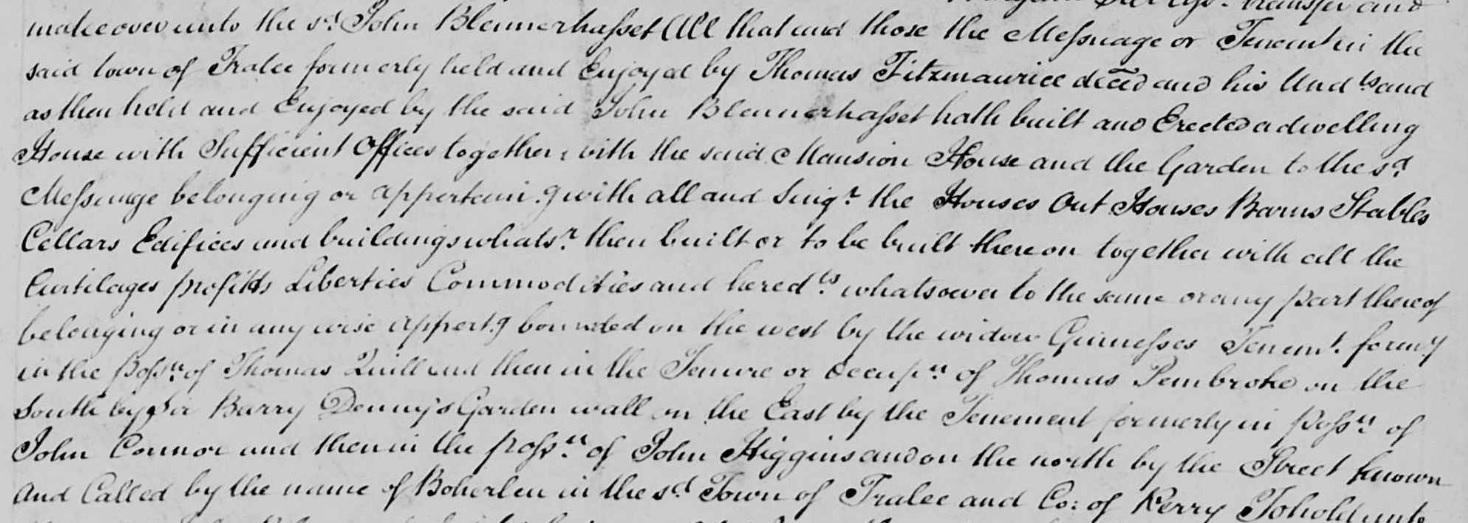 transfer and
make over unto the sd. John Blennerhasset All that and those the Messuage or Tenemt in the
said town of Tralee formerly held and Enjoyed by Thomas Fitzmaurice decēd and his Undts and
as then held and Enjoyed by the said John Blennerhasset hath built and Erected a dwelling
House with Sufficient Offices together with the said Mansion House and the Garden to the sd
Messuage belonging or appertaini.g with all and Singr. the Houses Out Houses Barns Stables
Cellars Edifices and buildings whatsr. then built or to be built thereon together with all the
Curtilages profitts Liberties Commodities and heredts. whatsoever to the same or any part thereof
belonging or in any wise appert.g bounded on the west by the widow Guinesses Tenemt. formy
in the possn. of Thomas Quill and then in the Tenure or occupn. of Thomas Pembroke on the
South by Sir Barry Denny's Garden wall on the East by the Tenement formerly in possn. of
John Connor and then in the possn. of John Higgins and on the north by the Street known
and Called by the name of Boherlen in the sd Town of Tralee and Co: of Kerry To hold unto